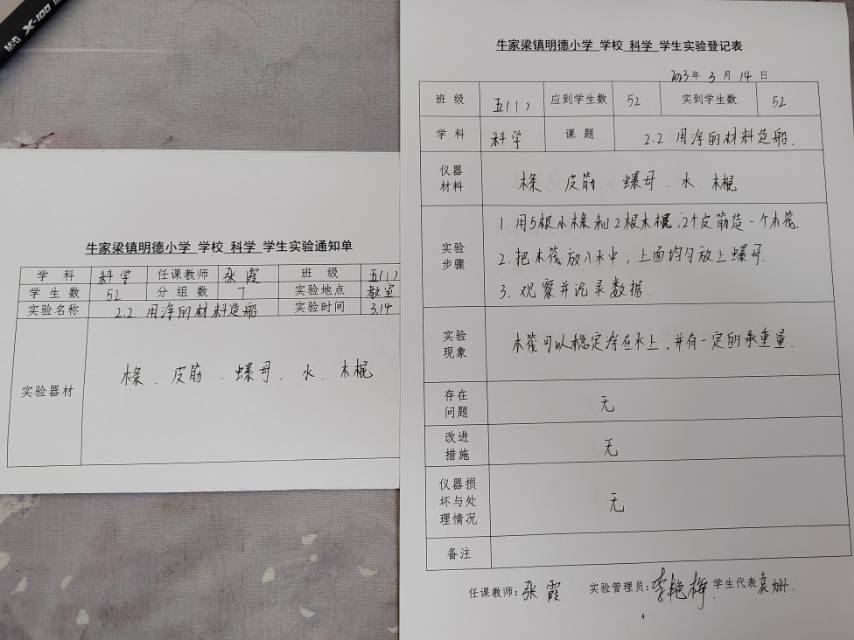 M&G X-100
牛家梁镇明德小学 学校 科学 学生实验通知单
学 科 科学 任课教师 张霞 班 级 五(1)
学 生 数 52 分 组 数 7 实验地点 教室
实验名称 2.2 用浮的材料造船 实验时间 3.14
实验器材 木条、皮筋、螺母、水、木棍
牛家梁镇明德小学 学校 科学 学生实验登记表
2023年 3 月 14 日
班 级 五(1) 应到学生数 52 实到学生数 52
学 科 科学 课 题 2.2 用浮的材料造船.
仪器材料 木条、皮筋、螺母、水、木棍
实验步骤
1. 用5根小木条和2根木棍,2个皮筋造一个木筏.
2. 把木筏放入水中,上面均匀放上螺母.
3. 观察并记录数据.
实验现象 木筏可以稳定浮在水上,并有一定的承重量.
存在问题 无
改进措施 无
仪器损坏与处理情况 无
备注
任课教师:张霞 实验管理员:李艳梅 学生代表袁姗.
4